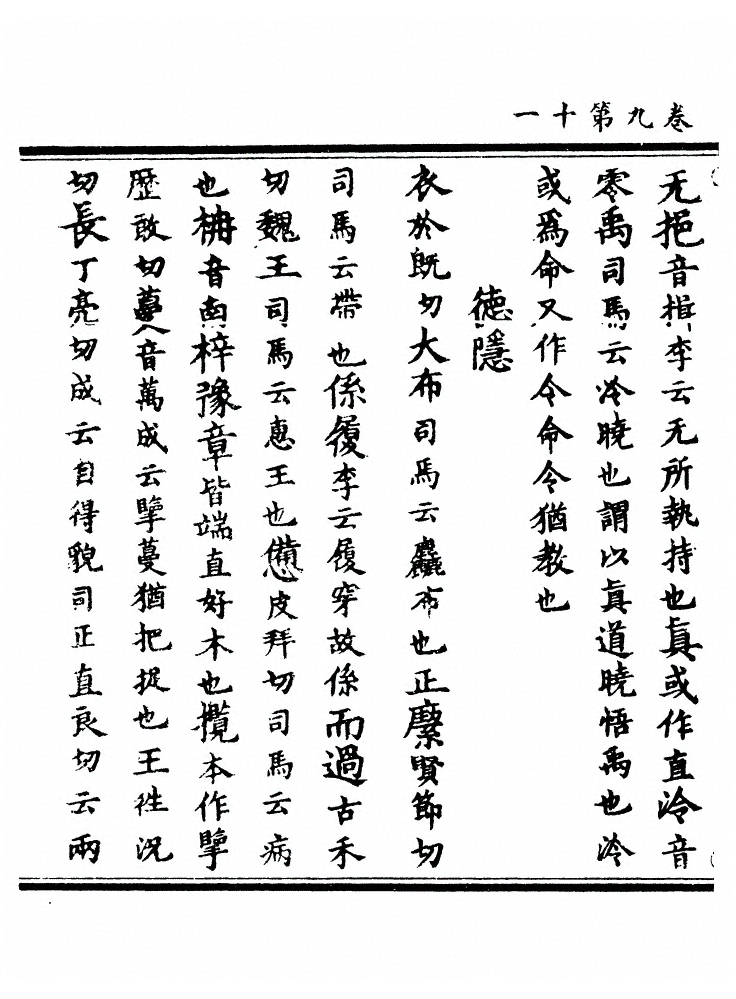 卷九第十一
无挹音揖李云无所執持也真或作直泠音
零禹司馬云泠曉也謂以真道曉悟禹也泠
或為命又作令命令猶教也
德隱
衣於既切大布司馬云麤布也正緳賢節切
司馬云帶也係履李云履穿故係而過古禾
切魏王司馬云惠王也憊皮拜切司馬云病
也柟音南梓豫章皆端直好木也攬本作擥
歷敢切蔓音萬成云擥蔓猶把捉也王往況
切長丁亮切成云自得貌司正直良切云兩